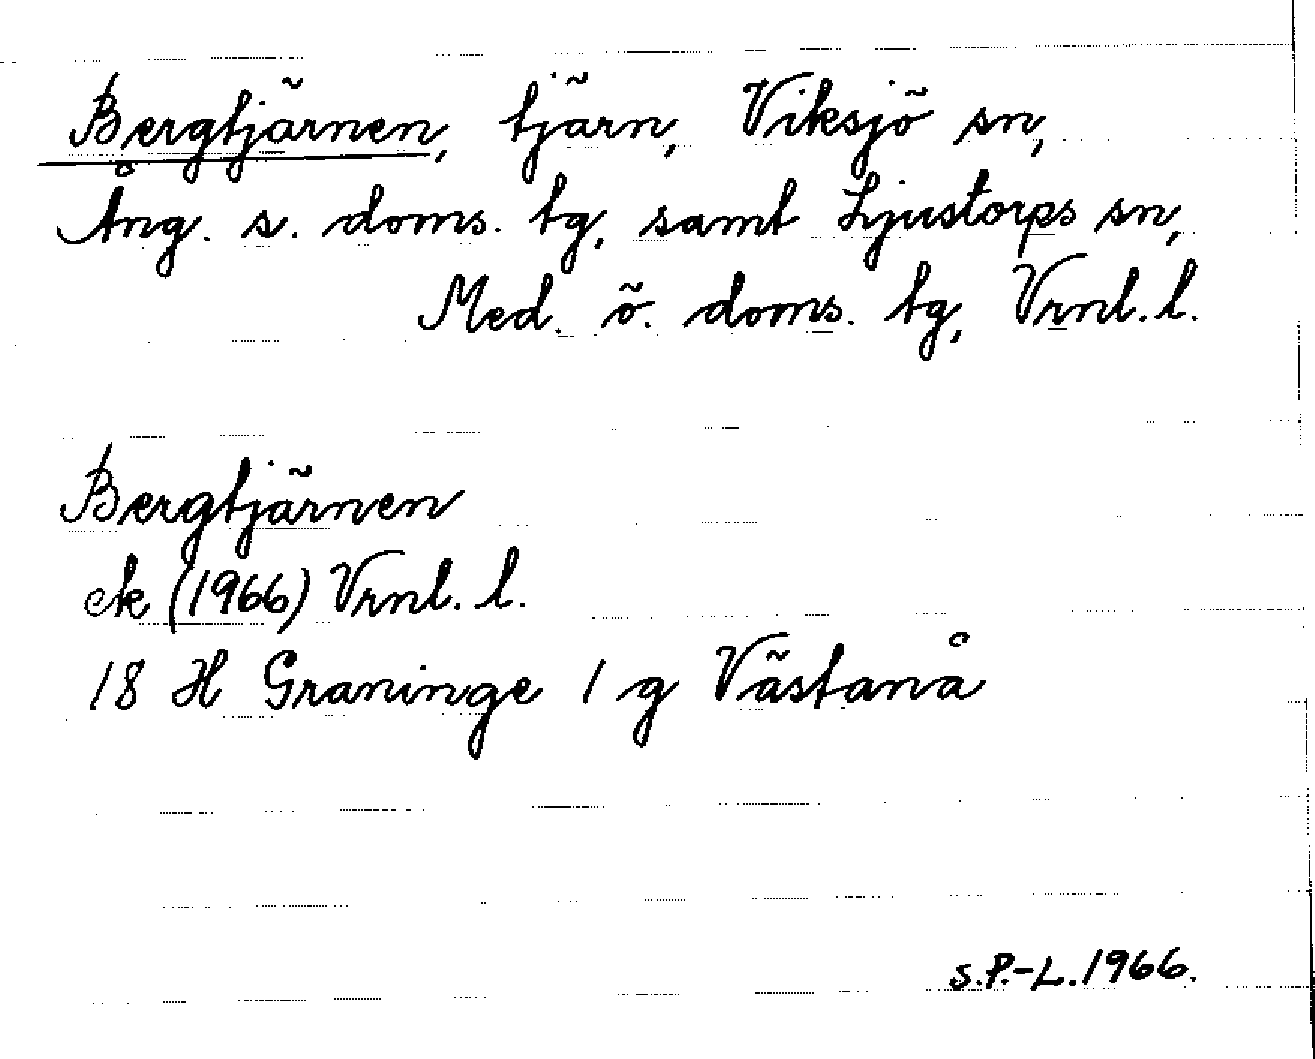 Bergtjärnen, tjärn, Viksjö sn,
Ång. s. doms. tg, samt Ljustorps sn,
Med. ö. doms. tg, Vrnl. l.
Bergtjärnen
ek (1966) Vrnl. l.
18 H Graninge 1 g Västanå
S.P.-L. 1966.